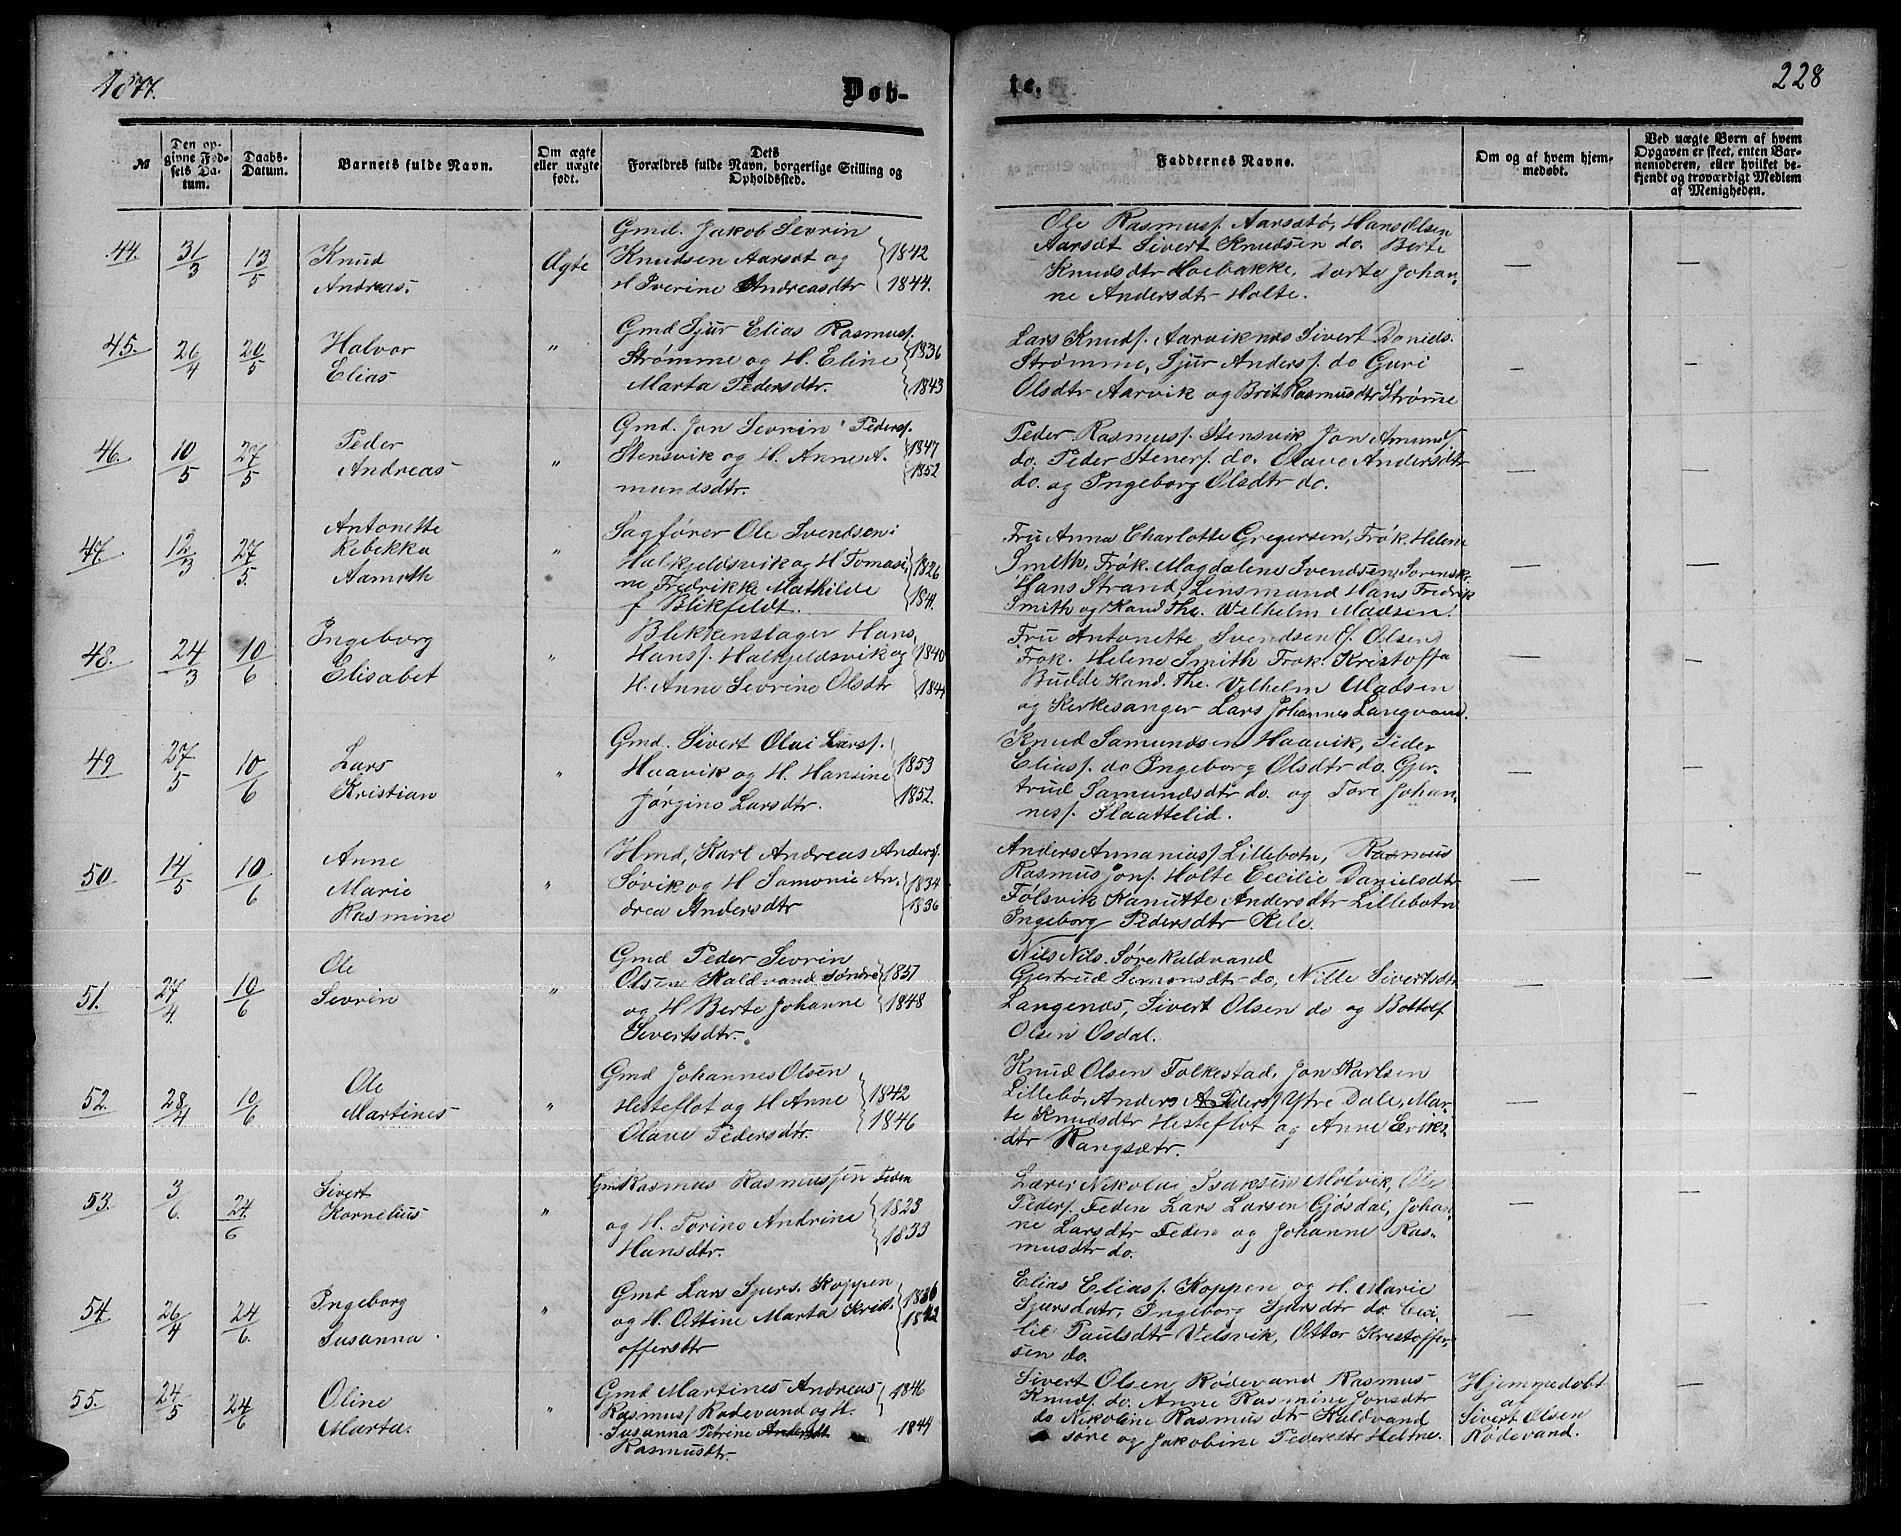 1877.
Døb-
te.
228
№
Den op-
givne Fød-
sels Da-
tum.
Daabs-
Datum.
Barnets fulde Navn.
Om ægte
eller uægte
født.
Dets
Forældres fulde Navn, borgerlige Stilling og
Opholdssted.
Faddernes Navne.
Om og af hvem hjem-
medøbt.
Ved uægte Børn af hvem
Opgaven er skeet, enten Bar-
nemoderen, eller hvilket be-
kjendt og troværdigt Medlem
af Menigheden.
44. 31/3 13/5
Knud
Andreas.
Ægte
Gmd. Jakob Sevrin
Knudsen Aarsæt og 1842
H Iverine Andreasdtr 1844.
Ole Rasmusf. Aarsætø, Hans Olsen
Aarsæt Sivert Knudsen do. Berte
Knudsdtr Hoebakke, Dorte Johan-
ne Andersdtr Holte.
— —
45. 26/4 20/5
Halvor
Elias
"
Gmd Sjur Elias Rasmusf.
Strømme og H. Eline 1836
Marta Pedersdtr. 1843
Lars Knudf. Aarviknæs Sivert Daniels.
Strømme, Sjur Andersf. do Guri
Olsdtr Aarvik og Brit Rasmusdtr Strømme
— —
46. 10/5 27/5
Peder
Andreas
"
Gmd. Jon Sevrin Pedersf.
Stensvik og H. Anne A- 1847
mundsdtr. 1852
Peder Rasmusf. Stensvik Jon Amundf.
do. Peder Stenerf. do. Olave Andersdtr
do. og Ingeborg Olsdtr do.
— —
47. 12/3 27/5.
Antonette
Rebekka
Aamoth
"
Sagfører Ole Svendsen
Halkjeldsvik og H Tomasi- 1826
ne Fredrikke Mathilde 1841.
f Blikfeldt.
Fru Anna Charlotte Gregersen, Frøk. Helene
Smith, Frøk. Magdalene Svendsen, Sorensk.
Hans Strand, Lensmand Hans Fredrik
Smith og Kand. The. Vilhelm Madsen.
— —
48. 24/3 10/6
Ingeborg
Elisabet
"
Blikkenslager Hans
Hansf. Halkjeldsvik og 1840
H. Anne Sevrine Olsdtr 1844
Fru Antonette Svendsen f. Olsen,
Frøk. Helene Smith Frøk. Kristoffa
Budde Kand. The. Vilhelm Madsen
og Kirkesanger Lars Johannes Langvand.
— —
49 27/5 10/6
Lars
Kristian
"
Gmd. Sivert Olai Larsf.
Haavik og H. Hansine 1853
Jørgine Larsdtr. 1852.
Knud Samundsen Haavik, Peder
Eliasf. do Ingeborg Olsdtr do. Gjer-
trud Samundsdtr do. og Tore Johan-
nesf. Slaattelid.
— —
50 14/5 10/6
Anne
Marie
Rasmine
"
Hmd, Karl Andreas Andersf.
Søvik og H Samonie An- 1834
drea Andersdtr 1836
Anders Annaniasf Lillebotn, Rasmus
Rasmus Jonf. Holte Cecilie Danielsdtr
Folsvik Kanutte Andersdtr Lillebotn
Ingeborg Pedersdtr Rele.
— —
51. 27/4. 10/6
Ole
Sevrin
"
Gmd Peder Sevrin
Olsen Kaldvand søndre 1851
og H Berte Johanne 1848
Sivertsdtr.
Nils Nils. Søre Kaldvand
Gjertrud Simonsdtr do, Nille Sivertsdtr
Langenæs, Sivert Olsen do og Bottolf
Olsen Osdal.
— —
52. 28/4 10/6
Ole
Martines
"
Gmd Johannes Olsen
Hesteflot og H Anne 1842
Olave Pedersdtr. 1846
Knud Olsen Folkestad, Jon Karlsen
Lillebø, Anders A. Pdersf Ytre Dale, Mar-
te Knudsdtr Hesteflot og Anne Eriks-
dtr Rangsætr.
— —
53. 3/6. 24/6
Sivert
Kornelius
"
Gmd Rasmus Rasmussen Feden
og H. Torine Andrine 1823
Hansdtr. 1833
Lærer Nikolai Isaksen Molvik, Ole
Pedersf. Feden Lars Larsen Gjøsdal, Johan-
ne Larsdtr Feden og Johanne Ras-
musdtr do.
— —
54. 26/4 24/6.
Ingeborg
Susanna.
"
Gmd Lars Sjurs. Koppen 1836
og H. Ottine Marta Krist- 1842
offersdtr
Elias Eliasf. Koppen og H. Marie
Sjursdatr, Ingeborg Sjursdtr do. Ceci-
lie Paulsdtr Velsvik, Ottar Kristoffer-
sen do.
— —
55. 24/5 24/6
Oline
Marta.
"
Gmd Martines Andreas 1846
Rasmusf Rødevand og H.
Susanna Petrine Andersdt 1844
Rasmusdtr.
Sivert Olsen Rødevand Rasmus
Knudf. do. Anne Rasmine Jonsdtr
do Nikoline Rasmusdtr Kaldvand
søre og Jakobine Pedersdtr Heltne.
Hjemmedøbt
af
Sivert Olsen
Rødevand.
—